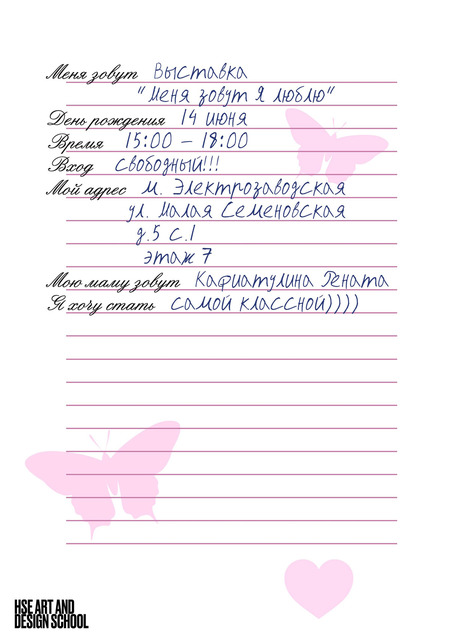 Меня зовут Выставка
"Меня зовут Я люблю"
День рождения 14 июня
Время 15:00 – 18:00
Вход свободный!!!
Мой адрес м. Электрозаводская
ул. Малая Семеновская
д.5 с.1
этаж 7
Мою маму зовут Кафиатулина Рената
Я хочу стать самой классной))))
HSE ART AND
DESIGN SCHOOL